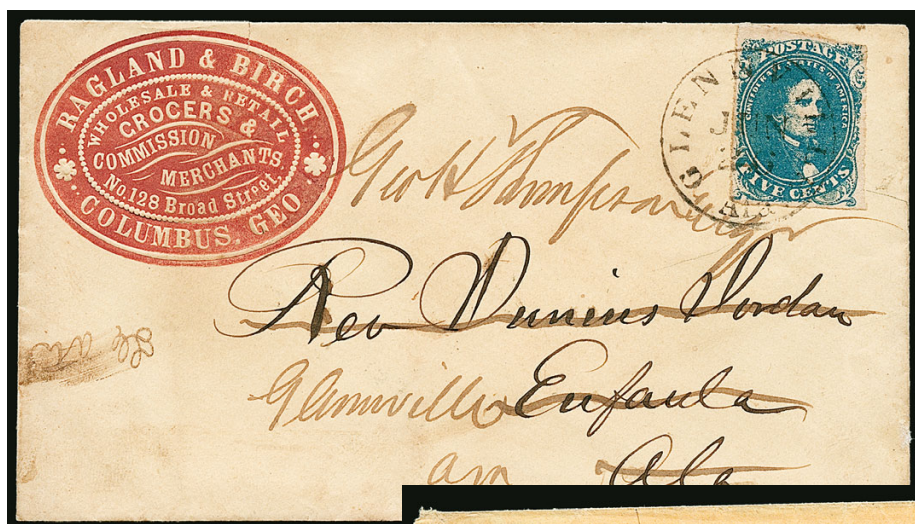 RAGLAND & BIRCH
WHOLESALE & RETAIL
GROCERS &
COMMISSION
MERCHANTS
No 128 Broad Street.
COLUMBUS, GEO
POSTAGE
CONFEDERATE STATES OF AMERICA
FIVE CENTS
GLEN
ALA
Geo H Thompson
Rev Junius Jordan
Glennville Eufaula
Ala